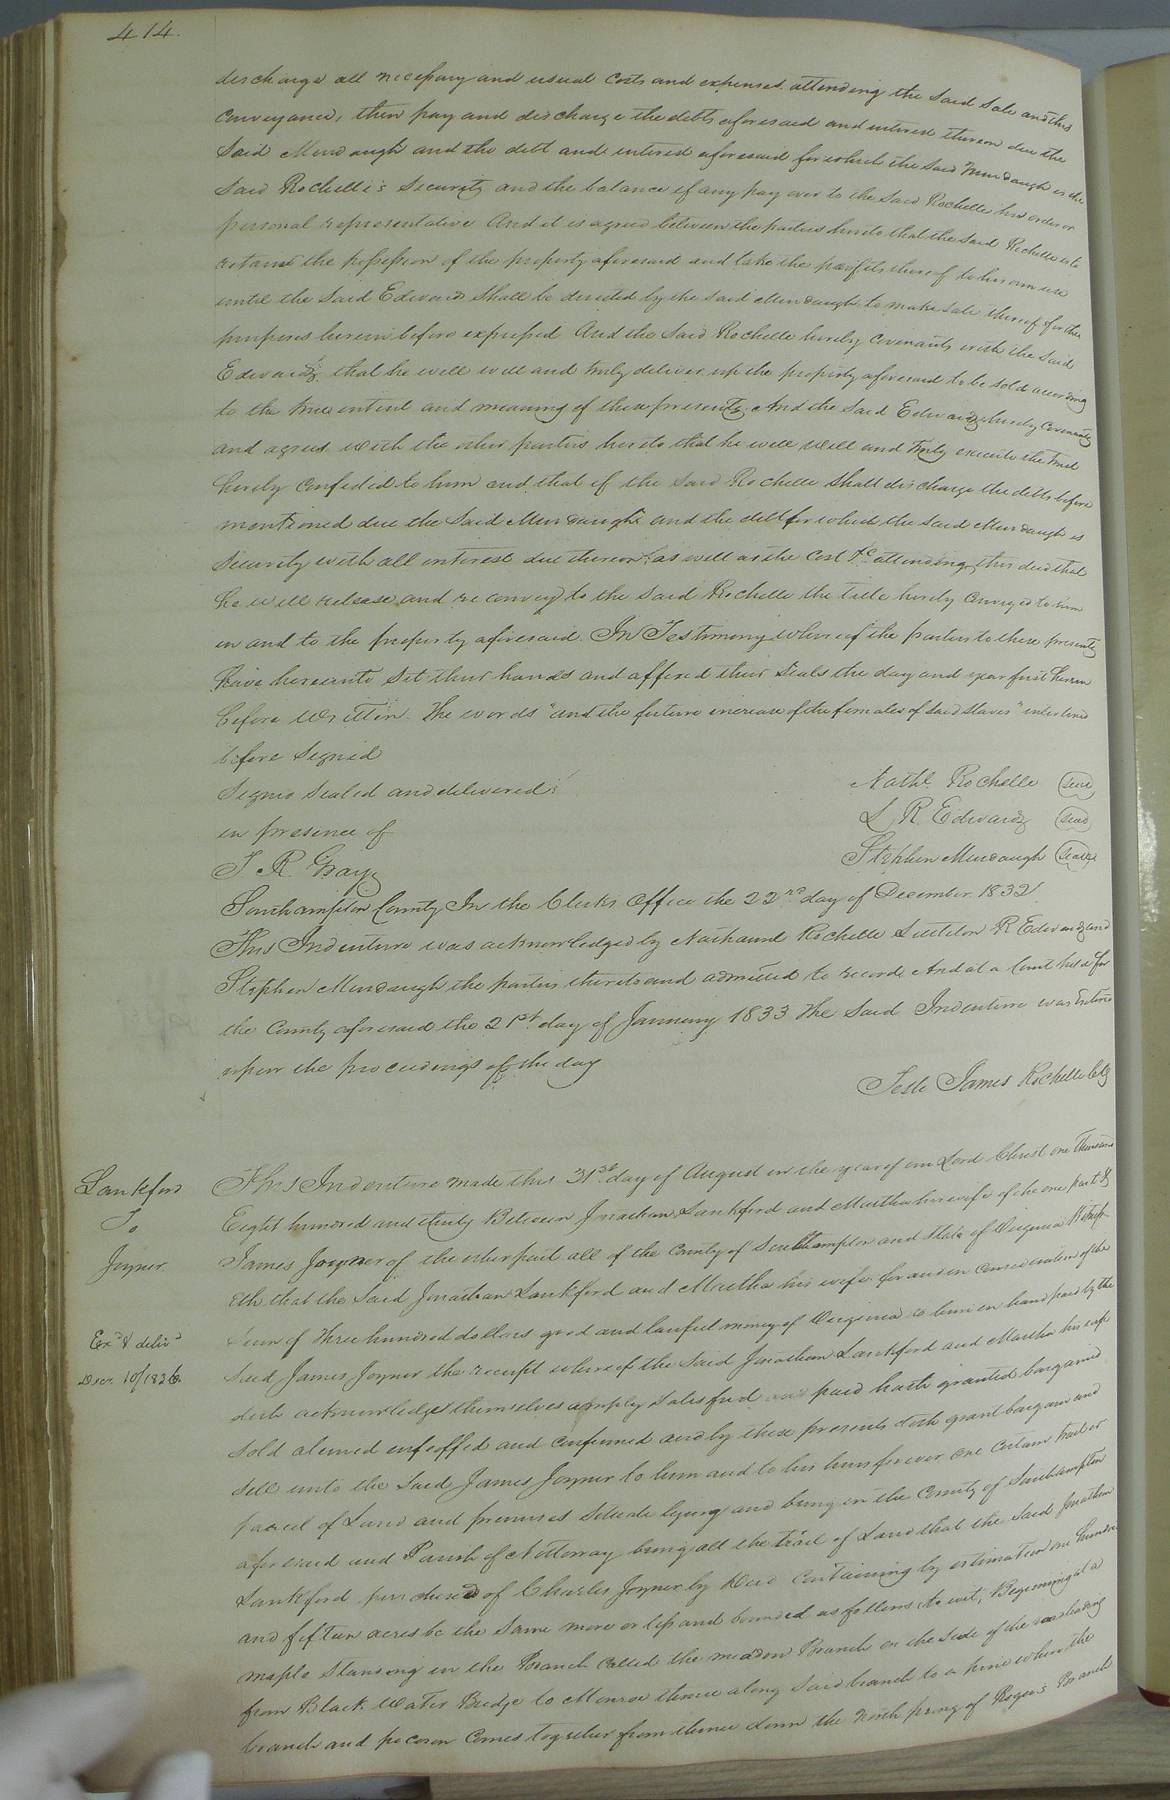 414.
discharge all necessary and usual costs and expenses attending the said sale and this
conveyance, then pay and discharge the debts aforesaid and interest thereon due the
said Murdaugh and the debt and interest aforesaid for which the said Murdaugh is the
said Rochelle's security and the balance if any pay over to the said Rochelle his order or
personal representative And it is agreed between the parties hereto that the said Rochelle is to
retain the possession of the property aforesaid and take the profits thereof to his own use
until the said Edwards shall be directed by the said Murdaugh to make sale thereof for the
purposes herein before expressed And the said Rochelle hereby covenants with the said
Edwards that he will well and truly deliver up the property aforesaid to be sold according
to the true intent and meaning of these presents And the said Edwards hereby covenants
and agrees with the other parties hereto that he will well and truly execute the trust
hereby confided to him and that if the said Rochelle shall discharge the debts before
mentioned due the said Murdaugh and the debt for which the said Murdaugh is
security with all interest due thereon as well as the cost &c attending this deed that
he will release and reconvey to the said Rochelle the title hereby conveyed to him
in and to the property aforesaid. In Testimony whereof the parties to these presents
have hereunto set their hands and affixed their seals the day and year first herein
before written. The words "and the future increase of the females of said slaves" interlined
before signed
Signed sealed and delivered
in presence of
T R Gray
Nathl. Rochelle Seal
L R Edwards Seal
Stephen Murdaugh Seal
Southampton County In the Clerks Office the 22nd day of December 1832
This Indenture was acknowledged by Nathaniel Rochelle Littleton R Edwards and
Stephen Murdaugh the parties thereto and admitted to record And at a Court held for
the County aforesaid the 21st day of January 1833 The said Indenture was entered
upon the proceedings of the day
Teste James Rochelle Clk
Lankford
To
Joyner.
Exd & delivd
Decr. 10/1836.
This Indenture made this 31st day of August in the year of our Lord Christ one thousand
Eight hundred and thirty Between Jonathan Lankford and Martha his wife of the one part &
James Joyner of the other part all of the County of Southampton and State of Virginia Witness
eth that the said Jonathan Lankford and Martha his wife for and in consideration of the
sum of three hundred dollars good and lawful money of Virginia to him in hand paid by the
said James Joyner the receipt whereof the said Jonathan Lankford and Martha his wife
doth acknowledge themselves amply satisfied and paid hath granted bargained
sold aliened enfeoffed and confirmed and by these presents doth grant bargain and
sell unto the said James Joyner to him and to his heirs forever one certain tract or
parcel of Land and premises situate lying and being in the County of Southampton
aforesaid and Parish of Nottoway being all the tract of Land that the said Jonathan
Lankford purchased of Charles Joyner by Deed containing by estimation one hundred
and fifteen acres be the same more or less and bounded as follows, to wit, Beginning at a
maple standing in the Branch called the meadow Branch on the side of the road leading
from Black Water Bridge to Monroe thence along said branch to a pine where the
branch and pocoson comes together from thence down the north prong of Rogers Branch